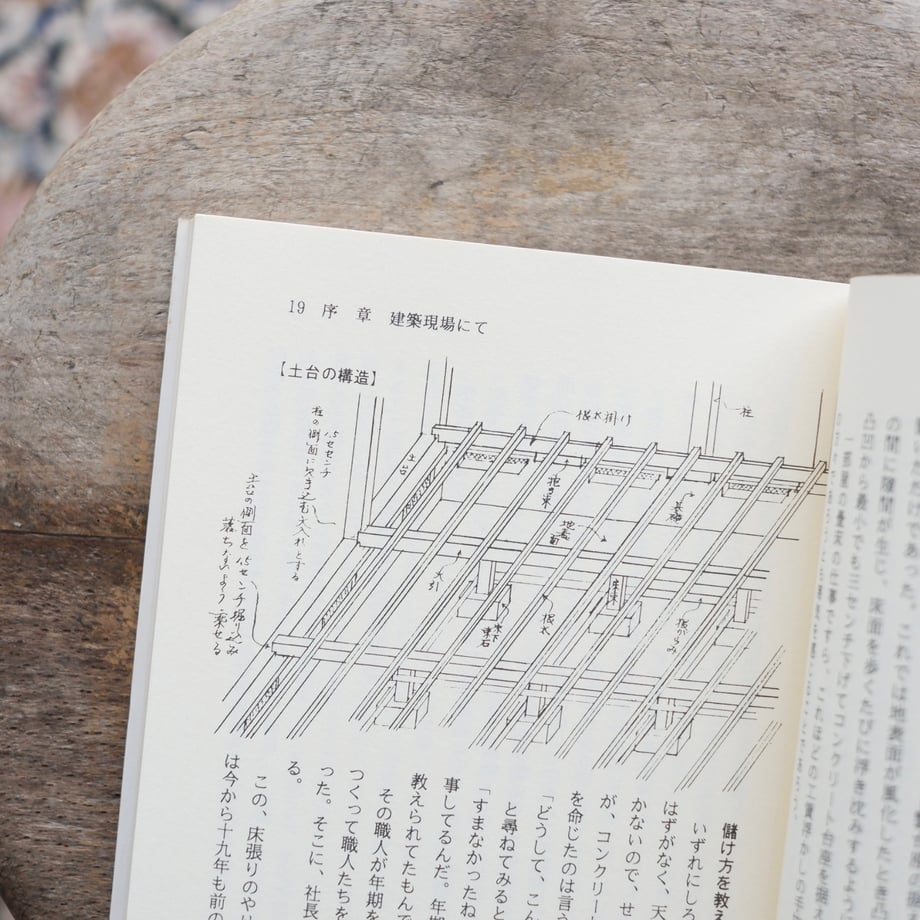 19 序章 建築現場にて
【土台の構造】
柱
根太掛け
土台
1.5センチ
柱の側面に欠き込む大入れとする
土台の側面を1.5センチ掘り込み
落ちないよう乗せる
地表面
大引
束石
根太
根がらみ
の間に隙間が生じ、床面を歩くたびに浮き沈みするよう
凸凹から最少でも三センチ下げてコンクリート台座を据
儲け方を教え
いずれにしろ
はずがなく、天
かないので、せ
が、コンクリー
を命じたのは言う
「どうして、こん
と尋ねてみると
「すまなかったね
事してるんだ。年期
教えられてたもんで
その職人が年期を
つくって職人たちを
った。そこに、社長
る。
この、床張りのやり
は今から十九年も前の